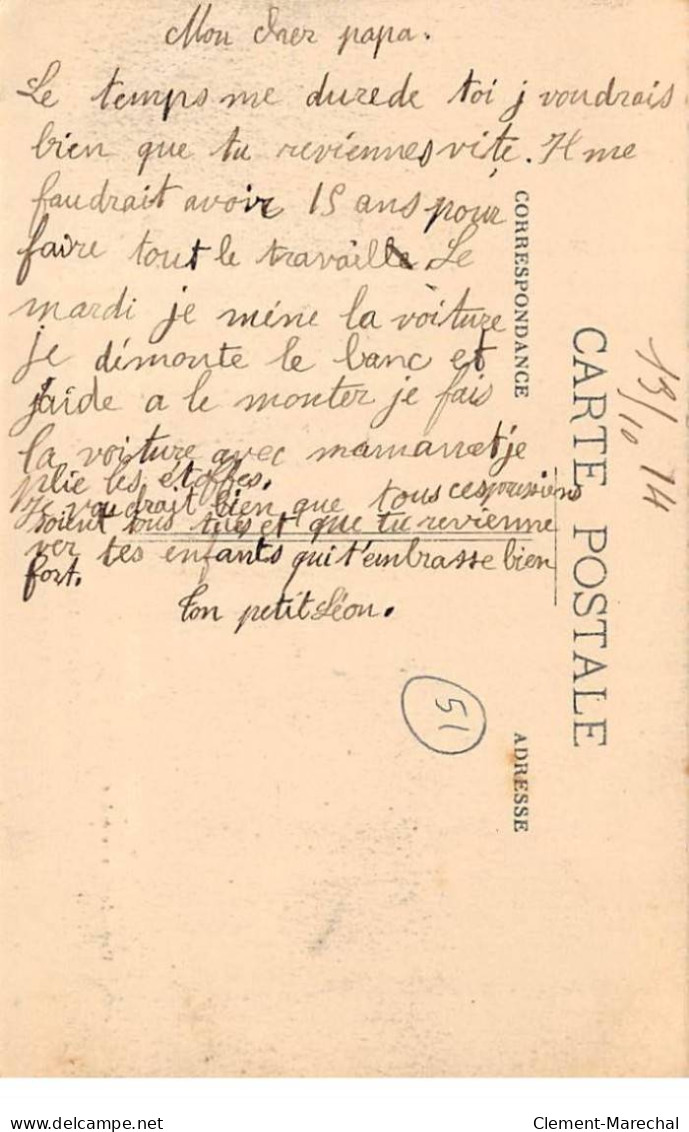 Mon cher papa.
Le temps me dure de toi j voudrais
bien que tu reviennes vite. Il me
faudrait avoir 15 ans pour
faire tout le travaille Le
mardi je méne la voiture
je démonte le banc et
jaide a le monter je fais
la voiture avec maman et je
plie les étoffes.
Je voudrait bien que tous ces prussiens
soient tous tués et que tu revienne
ver tes enfants qui t'embrasse bien
fort.
Ton petit Léon.
CORRESPONDANCE
ADRESSE
CARTE POSTALE
13/10 14
51
Clement-Marechal